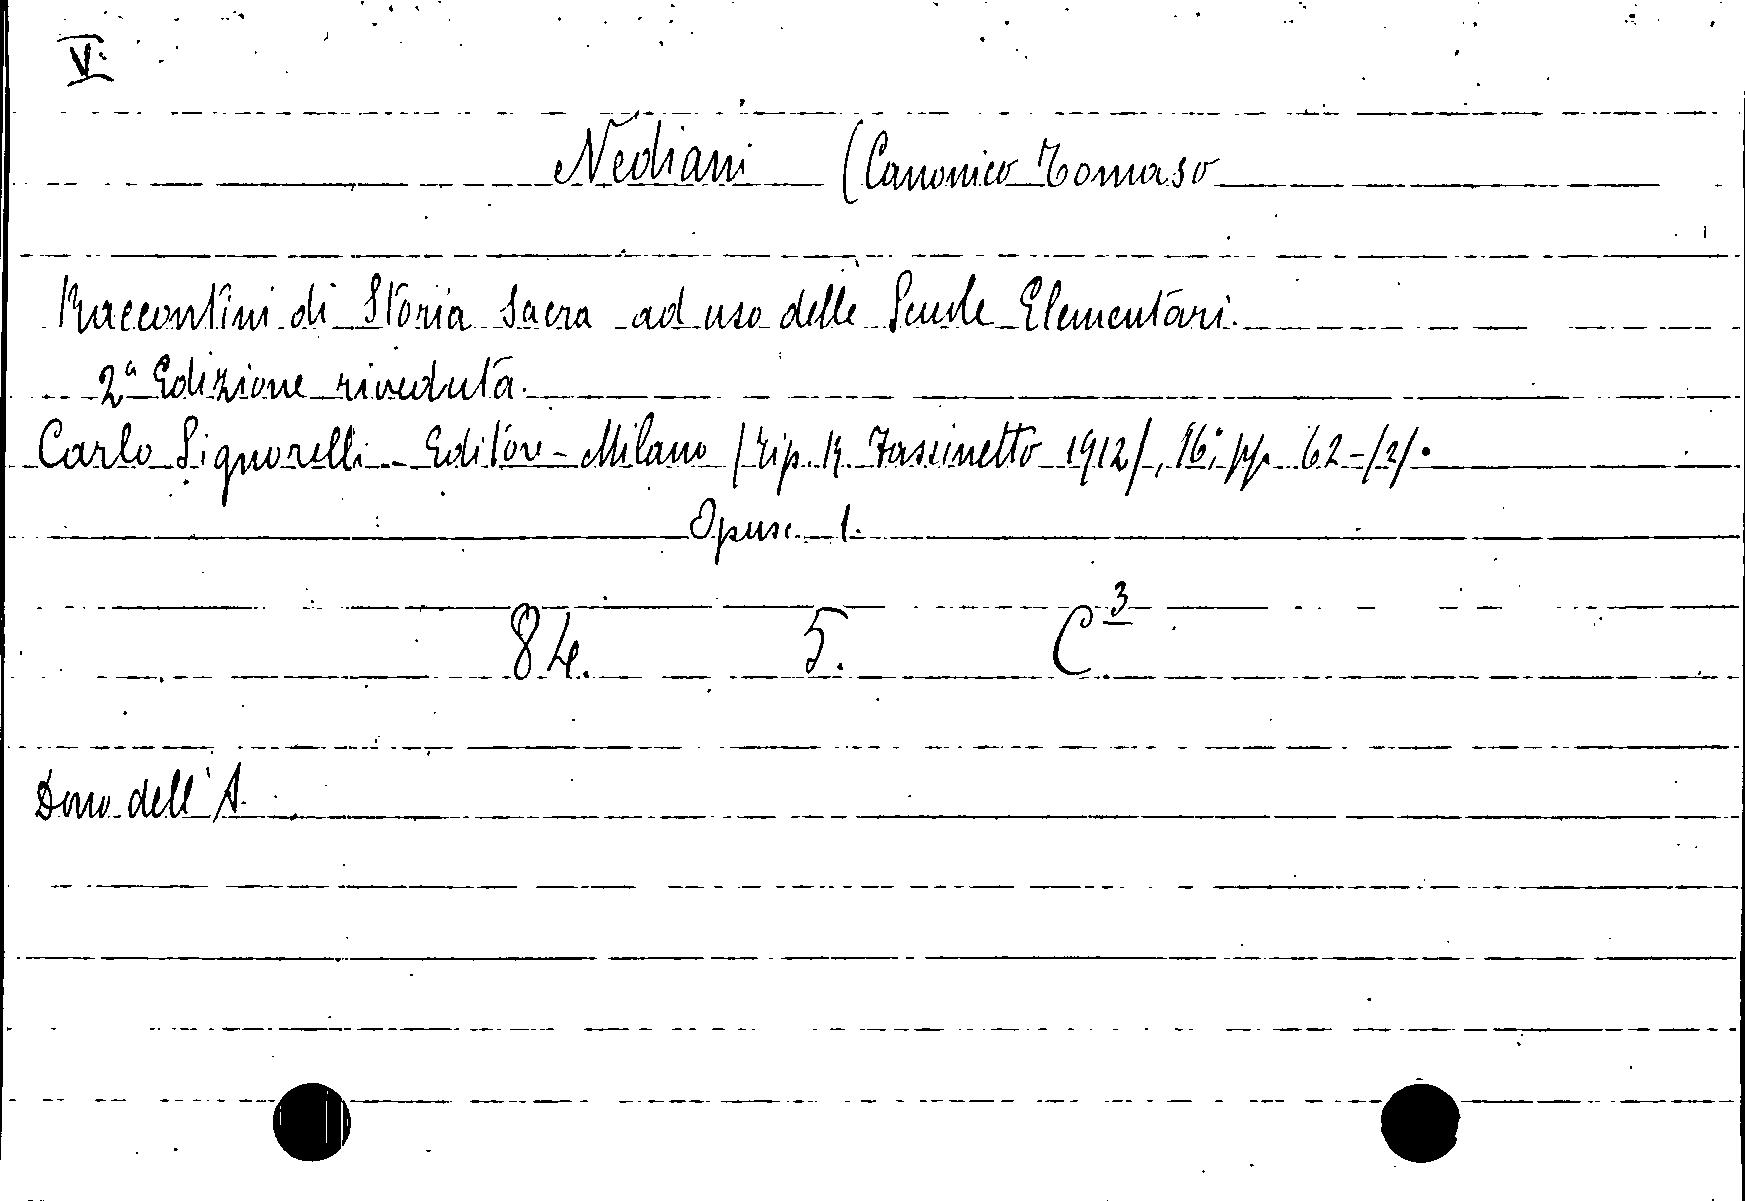 V.
Nediani (Canonico Tomaso
Raccontini di Storia Sacra ad uso delle Scuole Elementari.
2ª Edizione riveduta.
Carlo Signorelli - Editore - Milano (Tip. R. Fascinetto 1912), 16°, pp. 62-(2).
Opusc. 1.
84. 5. C.3
Dono dell'A.